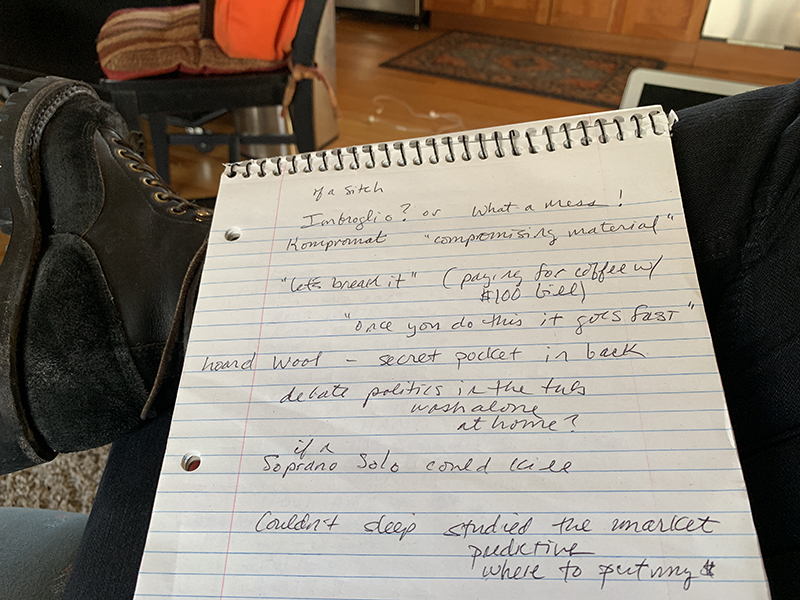 of a sitch
Imbroglio? or What a mess!
Kompromat "compromising material"
"let's break it" (paying for coffee w/
$100 bill)
"once you do this it goes fast"
hoard wool – secret pocket in back
debate politics in the tubs
wash alone
at home?
if a
Soprano Solo could kill
Couldn't sleep studied the market
predictive
where to put my $